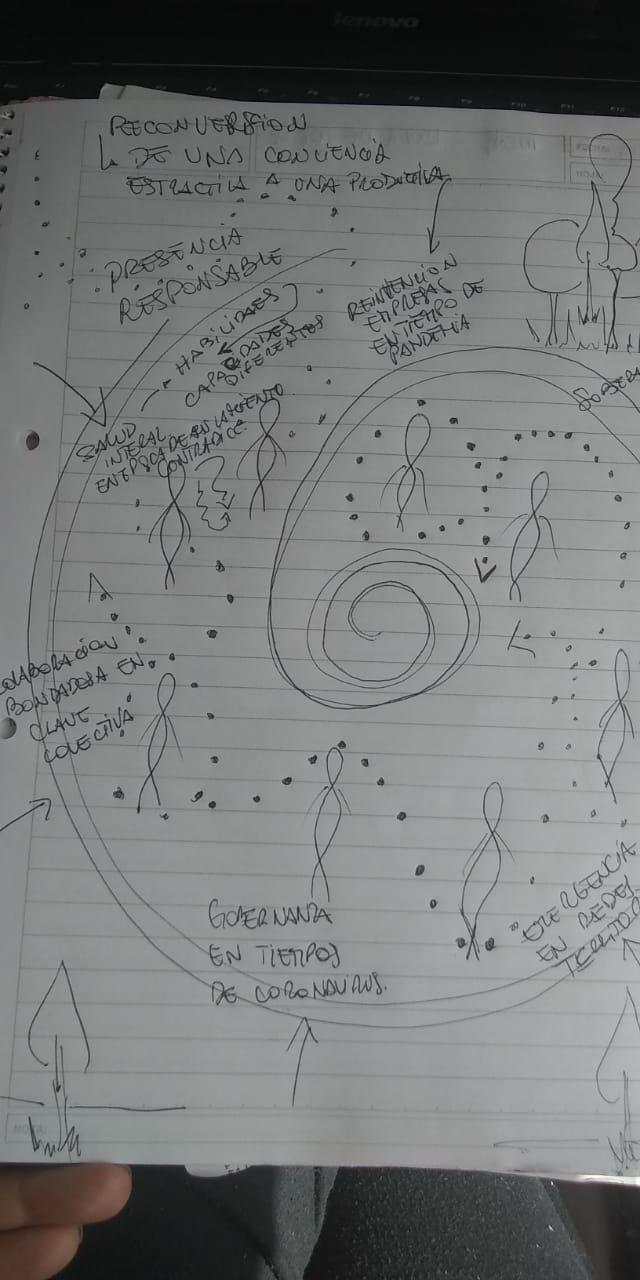 lenovo
RECONVERSION
DE UNA CONCIENCIA
ESTRACTIVA A UNA PRODUCTIVA
PRESENCIA
RESPONSABLE
HABILIDADES
CAPACIDADES
DIFERENTES
REINTENCION
EMPRESAS
EN TIEMPO DE
PANDEMIA
SALUD
INTEGRAL
EN EPOCA DE AISLAMIENTO
COLABORACION
BONDADOSA EN
CLAVE
COLECTIVA
GOBERNANZA
EN TIEMPOS
DE CORONAVIRUS.
EMERGENCIA
EN REDES